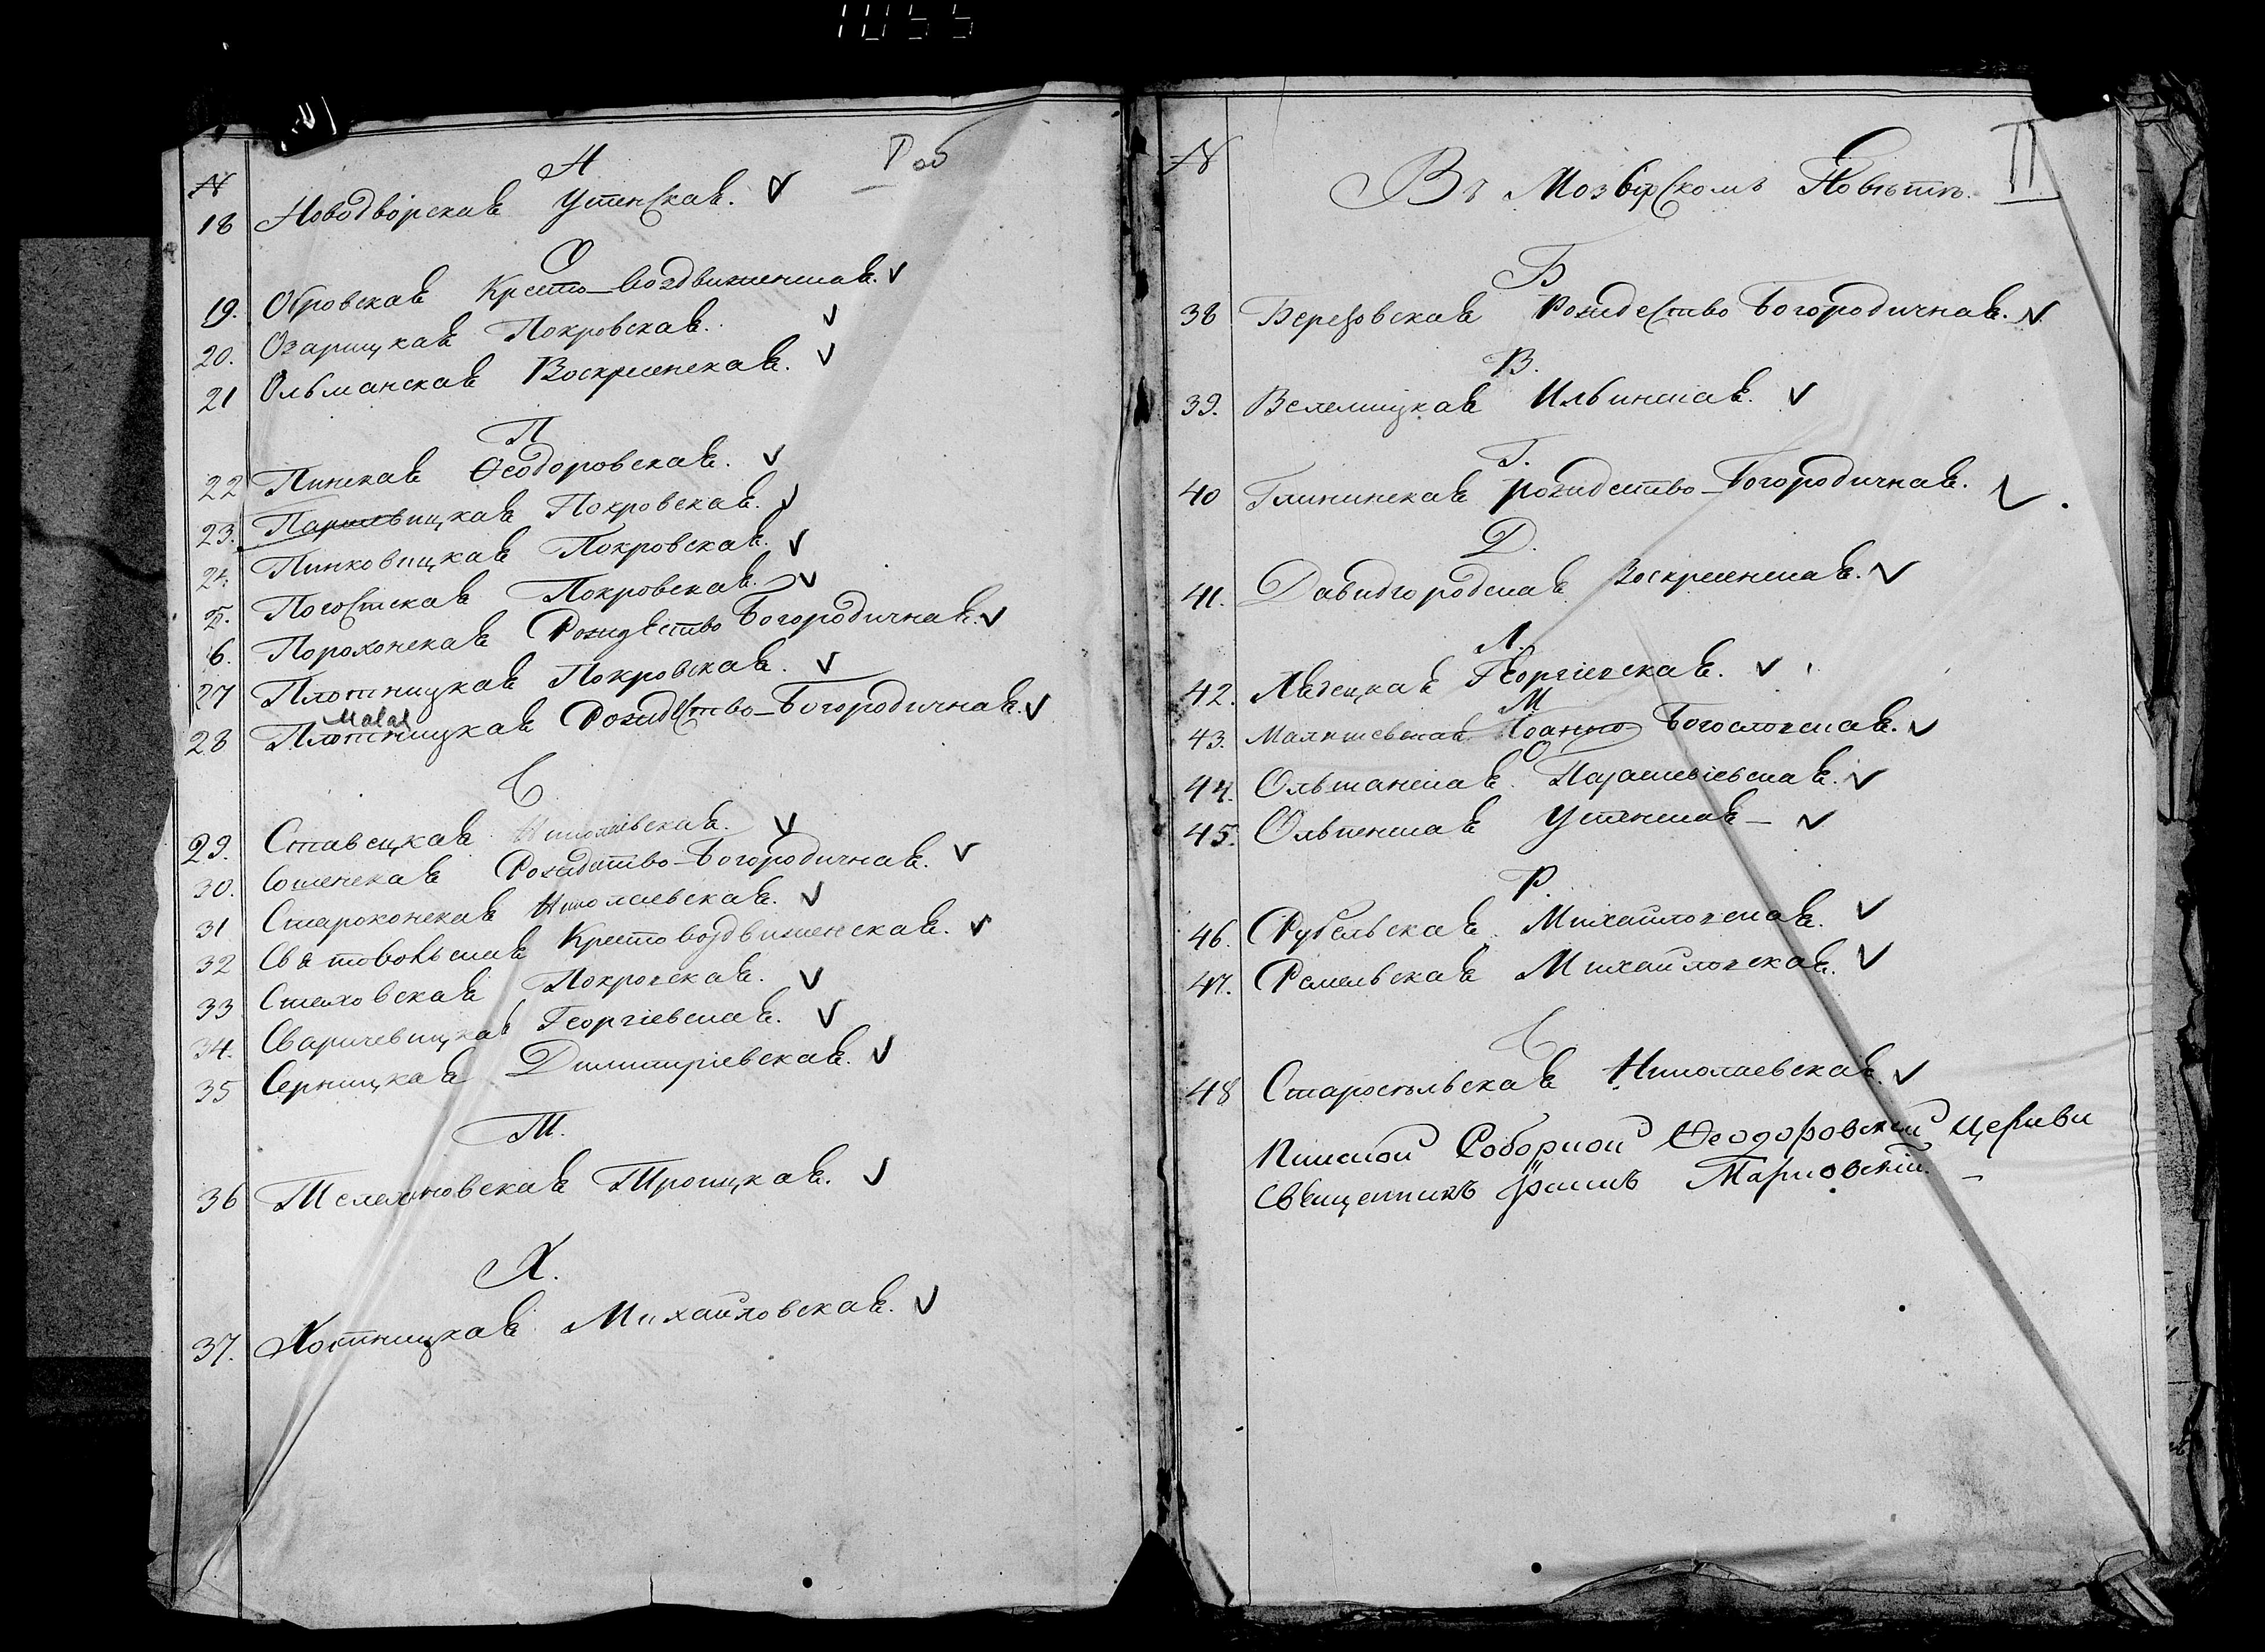 1055
I об
№
Н
18 Новодворская Успенская. ✓
О
19. Обровская Кресто-Воздвиженская. ✓
20. Озарицкая Покровская. ✓
21 Ольманская Воскресенская. ✓
П
22 Пинская Ѳеодоровская. ✓
23. Паршевицкая Покровская. ✓
24. Пинковицкая Покровская. ✓
25. Погостская Покровская. ✓
6. Порохонская Рождество Богородичная. ✓
27 Плотницкая Покровская. ✓
Malaя
28 Плотницкая Рождество-Богородичная. ✓
С
29. Ставецкая Николаевская. ✓
30. Сошенская Рождество-Богородичная. ✓
31 Староконская Николаевская. ✓
32 Святовольская Крестовоздвиженская. ✓
33 Стаховская Покровская. ✓
34. Сваричевицкая Георгіевская. ✓
35 Серницкая Димитріевская. ✓
Т.
36 Телехановская Троицкая. ✓
Х.
37. Хотницкая Михайловская. ✓
№
II
Въ Мозырскомъ Повѣтѣ.
Б
38 Березовская Рождество Богородичная. ✓
В.
39. Велемицкая Ильинская. ✓
Г.
40 Глининская Рождество-Богородичная. ✓
Д.
41. Давидгородская Воскресенская. ✓
Л.
42. Лядецкая Георгіевская. ✓
М
43. Малишевская Іоанно Богословская. ✓
О
44. Ольшанская Параскевіевская. ✓
45. Ольпенская Успенская - ✓
Р.
46. Рубельская Михайловская. ✓
47. Ремельская Михайловская. ✓
С
48 Старосельская Николаевская. ✓
Пинской Соборной Ѳеодоровской Церкви
Священникъ Тарновскій. -